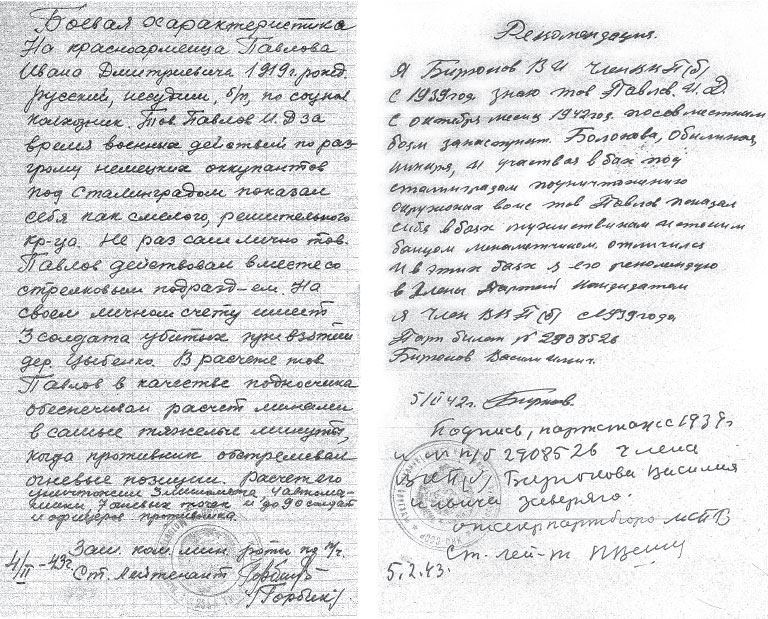 Боевая характеристика
На красноармейца Павлова
Ивана Дмитриевича 1919г. рожд.
русский, несудим, б/п, по социал
колхозник. Тов. Павлов И.Д за
время военных действий по раз-
грому немецких оккупантов
под Сталинградом показал
себя как смелого, решительного
кр-ца. Не раз сам лично тов.
Павлов действовал вместе со
стрелковым подразд-ем. На
своем личном счету имеет
3 солдата убитых при взятии
дер. Цыбенко. В расчете тов
Павлов в качестве подносчика
обеспечивал расчет минами
в самые тяжелые минуты,
когда противник обстреливал
огневые позиции. Расчет его
уничтожил 3 миномета, 4 автома-
шины 7 огневых точек и до 90 солдат
и офицеров противника.
Зам. ком. мин. роты по п/ч.
4/II-43г. Ст. Лейтенант
/Горбик/
Рекомендация.
Я Бирюков В И член ВКП(б)
с 1939 год. знаю тов Павлов. И. Д.
с октября месяц 1942 год. по совместным
боям
и участвуя в боях под
сталинградам по уничтожению
окружоних войс тов Павлов показал
себя в боях мужествиним и стоким
бойцом минометчиком. отличился
и в этих боях я его рекомендую
в Члены Партии кандидатам
я Член ВКП(б) с 1939 года
Парт билет № 2908526
Бирюков Василь Ильич.
5/II 42г. Бирюков.
Подпись, парт стаж с 1939г
и № п/б 2908526 члена
ВКП(б) Бирюкова Василия
Ильича заверяю.
отв секр партбюро МСПВ
Ст. лей-т
5.2.43.